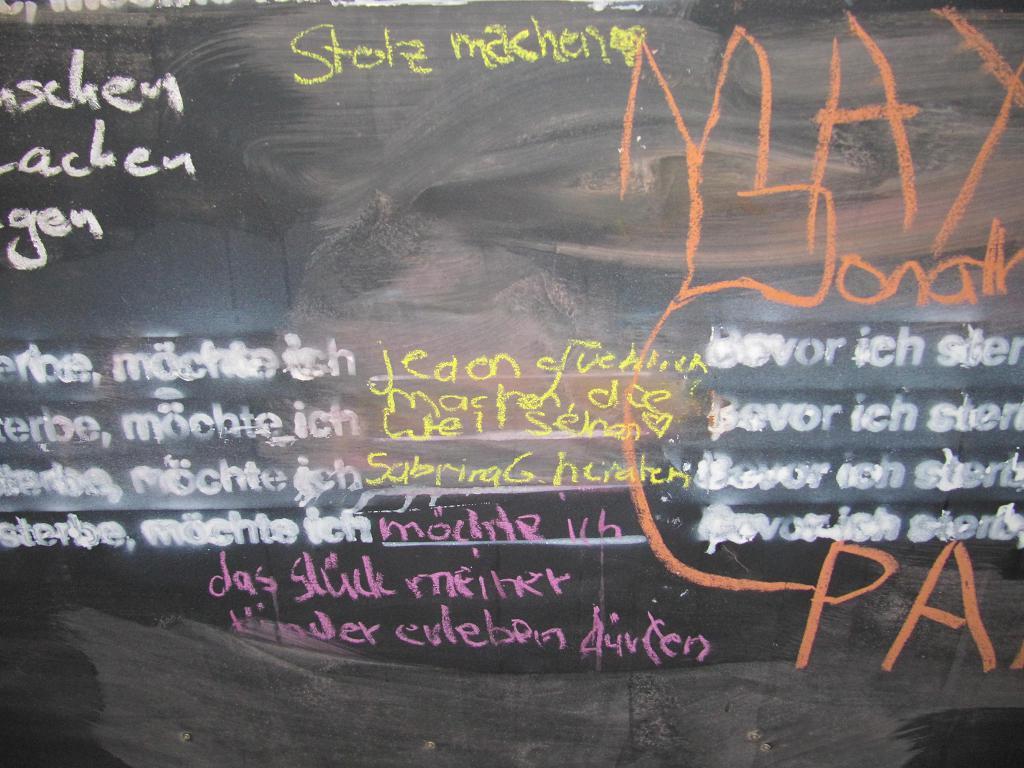 Stolz machen
MAX
Lachen
gen
möchte ich jeden glücklich Bevor ich ster
machen, die
möchte ich Welt sehen Bevor ich sterb
möchte ich Sabrina G. heiraten Bevor ich sterb
sterbe, möchte ich möchte ich Bevor ich sterb
das Glück meiner
Kinder erleben dürfen
PA